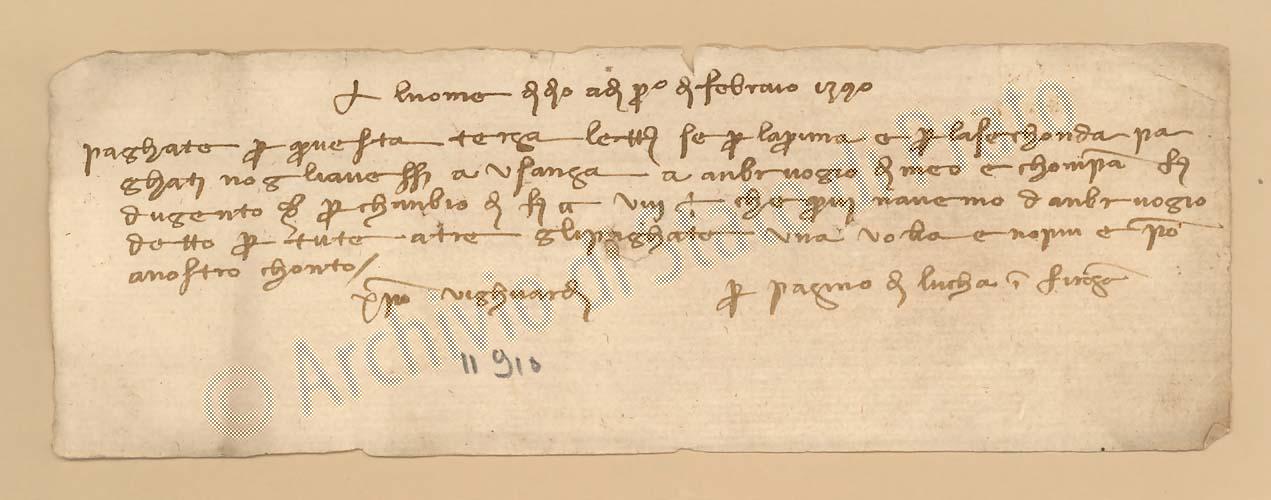 luome di dio adi pº di febraio 1390
paghate per questa terza letta se per la prima e per la sechonda pa
ghati no gli avessi a usanza a anbruogio di meo e chonpa fi
dugento per chanbio di fi viii che qui navemo d anbruogio
detto per tute atre gli paghate una volta e nopiu e
a nostro chonto
xpo vighuardi per pagino di lucha
11 910
© Archivio di Stato di Prato